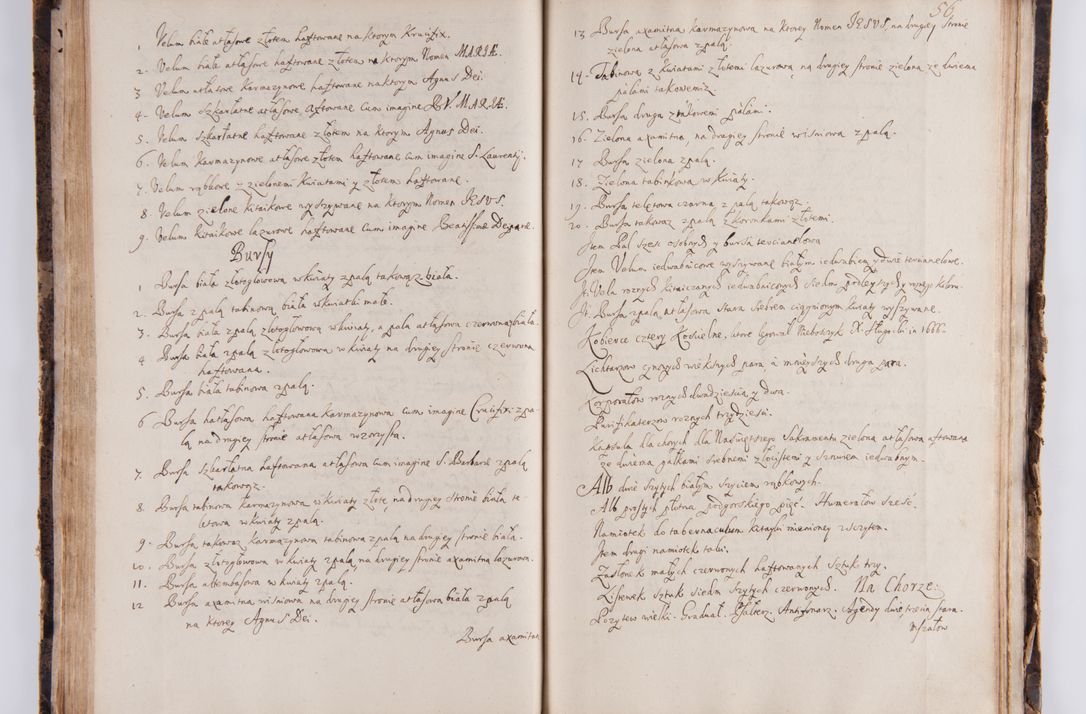 1 Velum białe atłasowe złotem haftowane na ktorym Krucifix.
2. Velum białe atłasowe haftowane złotem na ktorym Nomen MARIÆ.
3 Velum atłasowe Karmazynowe haftowane naktorym Agnus Dei.
4. Velum Szkarłatne atłasowe, aftowane Cum imagine B.V. MARIÆ.
5. Velum Szkarłatne haftowane złotem na ktorym Agnus Dei.
6. Velum Karmazynowe atłasowe złotem haftowane cum imagine S. Laurentij.
7. Velum rąbkowe z zielonemi Kwiatami y złotem haftowane.
8. Velum zielone kitaikowe wyszywane na ktorym Nomen IESVS.
9. Velum Kitaikowe lazurowe haftowane Cum imagine Beatissimæ Deiparæ.
Bursy
1 Bursa biała złotogłowowa w kwiaty z palą takową z biała.
2. Bursa z palą tabinową biała w kwiatki małe.
3. Bursa biała z palą złotogłowowa w kwiaty, a pala atłasowa czerwona z biała.
4 Bursa biała z palą złotogłowowa w kwiaty na drugiey stronie czerwona
haftowana.
5. Bursa biała tabinowa z palą.
6 Bursa hatłasowa haftowana karmazynowa cum imagine Crucifix: z pa-
lą na drugiey stronie atłasowa wzorysta.
7. Bursa Szkarłatna haftowana atłasowa cum imagine S. Barbaræ z palą
takowąz.
8. Bursa tabinowa Karmazynowa w kwiaty złote, na drugiey stronie biała te-
letowa w kwiaty z palą.
9. Bursa takowaz Karmazynowa tabinowa z palą na drugiey stronie biała.
10. Bursa złotogłowowa w kwiaty z palą na drugiey stronie axamitna lazurowa.
11. Bursa altembasowa w kwiaty z palą.
12 Bursa axamitna wisniowa na drugiey stronie atłasowa biała z palą
na ktorey Agnus Dei.
Bursa axamitna
56
13 Bursa axamitna karmazynowa na Ktorey Nomen IESVS, na drugiey stronie
zielona atłasowa z palą.
14. Tabinowa z kwiatami złotemi lazurowa, na drugiey stronie zielona ze dwiema
palami takowemiz.
15. Bursa druga z takowemi palami.
16. Zielona axamitna, na drugiey stronie wisniowa z palą.
17 Bursa zielona z palą.
18. Zielona tabinkowa w kwiaty.
19. Bursa teletowa czarna z palą takowąz.
20. Bursa takowaz z palą z koronkami złotemi.
Item Pal szesc osobnych y bursa terciantłowa
Item Velum iedwabnicowe wyszywane białym iedwabicą y dwie ternanelowe.
It: Vela roznych kitaiczanych iedwabnicowych siedm podleyszych y roznego koloru.
It. Bursa z palą atłasowa Stara srebrem ciągnionym kwiaty wyszywane.
Kobierce cztery Koscielne, ktore sprawił Nieboszczyk X. Sługocki in 1666.
Lichtarzow cynowych większych para a mnieyszych druga para.
Korporałow roznych dwadziescia y dwa.
Purifikaterzow roznych trzydziesci.
Kapsula dla chorych dla Naswiętszego Sakramentu zielona atłasowa aftowana
ze dwiema gałkami srebnemi złocistemi y sznurem iedwabnym.
Alb dwie szytych białym szyciem rąbkowych.
Alb prostych płotna podgorskiego pięć. Humerałow Szesć.
Namiotek do tabernaculum kitayki mienioney z szyiem.
Item drugi namiotek tabi.
Zasłonek małych czerwonych haftowanych sztuk trzy.
Listewek sztuk siedm szytych czerwonych. Na Chorze:
Pozytew wielki. Graduał. Psałterz. Antyfonarz. Agendy dwie, trzecia stara.
Mszałow